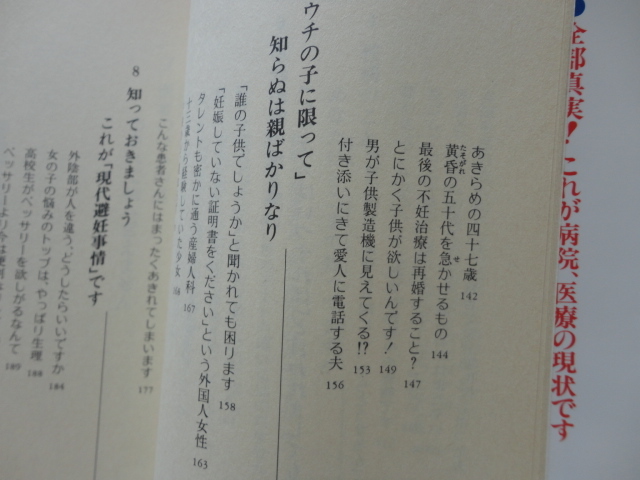 全部真実!これが病院、医療の現状です
あきらめの四十七歳 142
黄昏の五十代を急かせるもの 144
最後の不妊治療は再婚すること? 147
とにかく子供が欲しいんです! 149
男が子供製造機に見えてくる!? 153
付き添いにきて愛人に電話する夫 156
ウチの子に限って」
知らぬは親ばかりなり
「誰の子供でしょうか」と聞かれても困ります 158
「妊娠していない証明書をください」という外国人女性 163
タレントも密かに通う産婦人科 167
こんな患者さんにはまったくあきれてしまいます 177
8 知っておきましょう
これが「現代避妊事情」です
外陰部が人を違う、どうしたらいいですか 184
女の子の悩みのトップは、やっぱり生理 188
高校生がペッサリーを欲しがるなんて 189